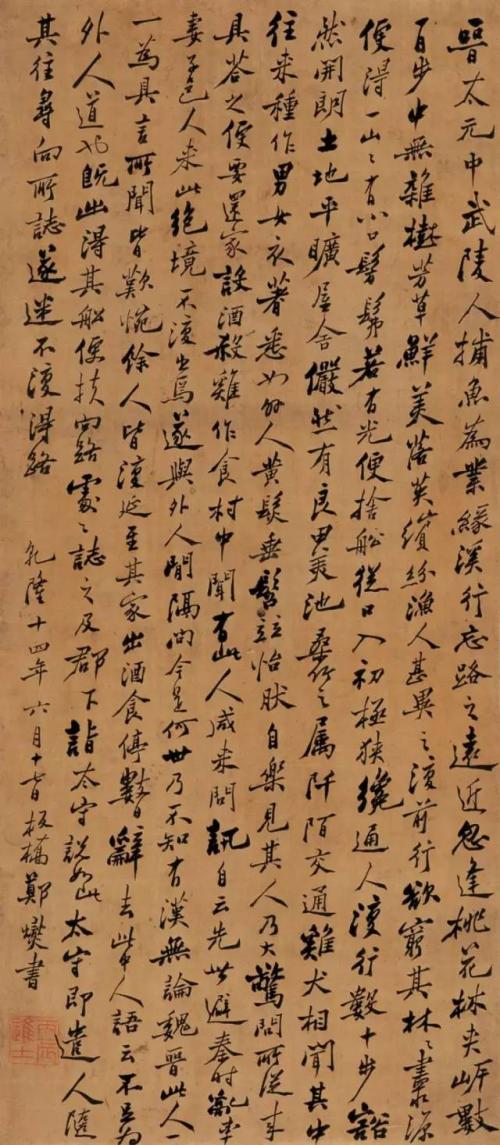 晉太元中武陵人捕魚為業緣溪行忘路之遠近忽逢桃花林夾岸數
百步中無雜樹芳草鮮美落英繽紛漁人甚異之復前行欲窮其林〻盡源
便得一山〻有小口髣髴若有光便捨船從口入初極狹纔通人復行數十步豁
然開朗土地平曠屋舍儼然有良田美池桑竹之属阡陌交通雞犬相聞其中
往来種作男女衣著悉如外人黄髮垂髫竝怡然自樂見其人乃大驚問所從来
具答之便要還家設酒殺雞作食村中聞有此人咸来問訊自云先世避秦時亂率
妻子邑人来此絶境不復出焉遂與外人間隔問今是何世乃不知有漢無論魏晉此人一
一為具言所聞皆歎惋餘人皆復延至其家出酒食停數日辭去此中人語云不足為
外人道也既出得其船便扶向路處〻誌之及郡下詣太守說如此太守即遣人隨
其往尋向所誌遂迷不復得路
乾隆十四年六月十日板橋鄭燮書
丙辰進士